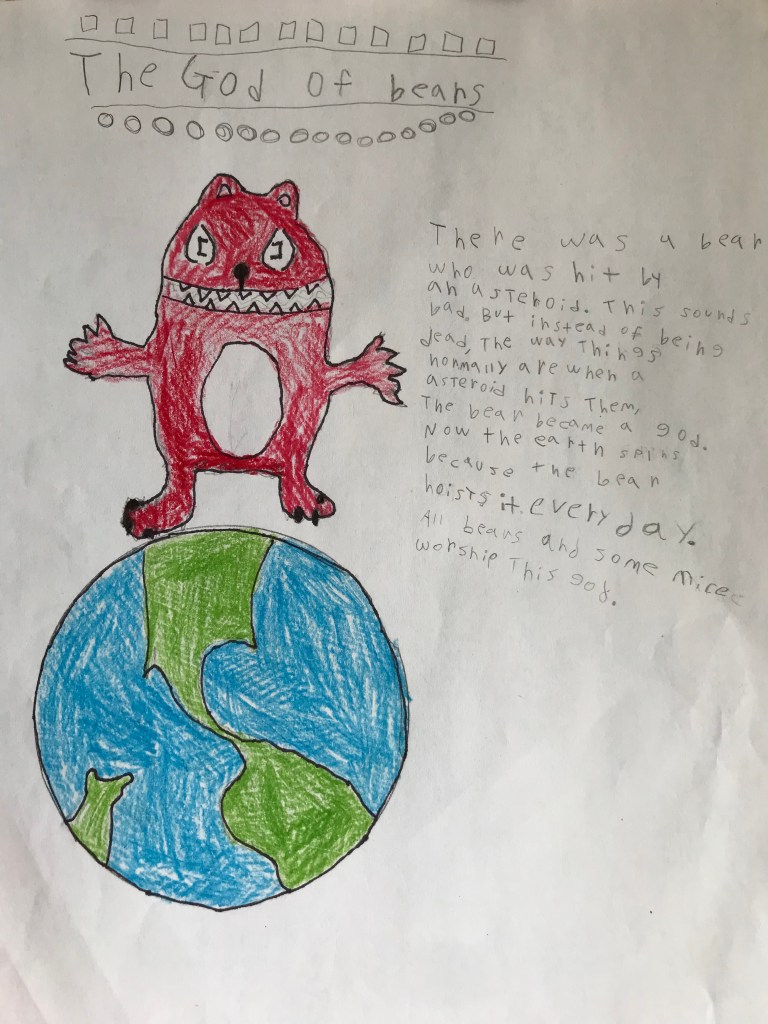 The God of bears
There was a bear
who was hit by
an asteroid. This sounds
bad. But instead of being
dead, The way Things
normally are when a
asteroid hits Them,
The bear became a god.
Now the earth spins
because the bear
hoists it. every day.
All bears and some micee
worship This god.